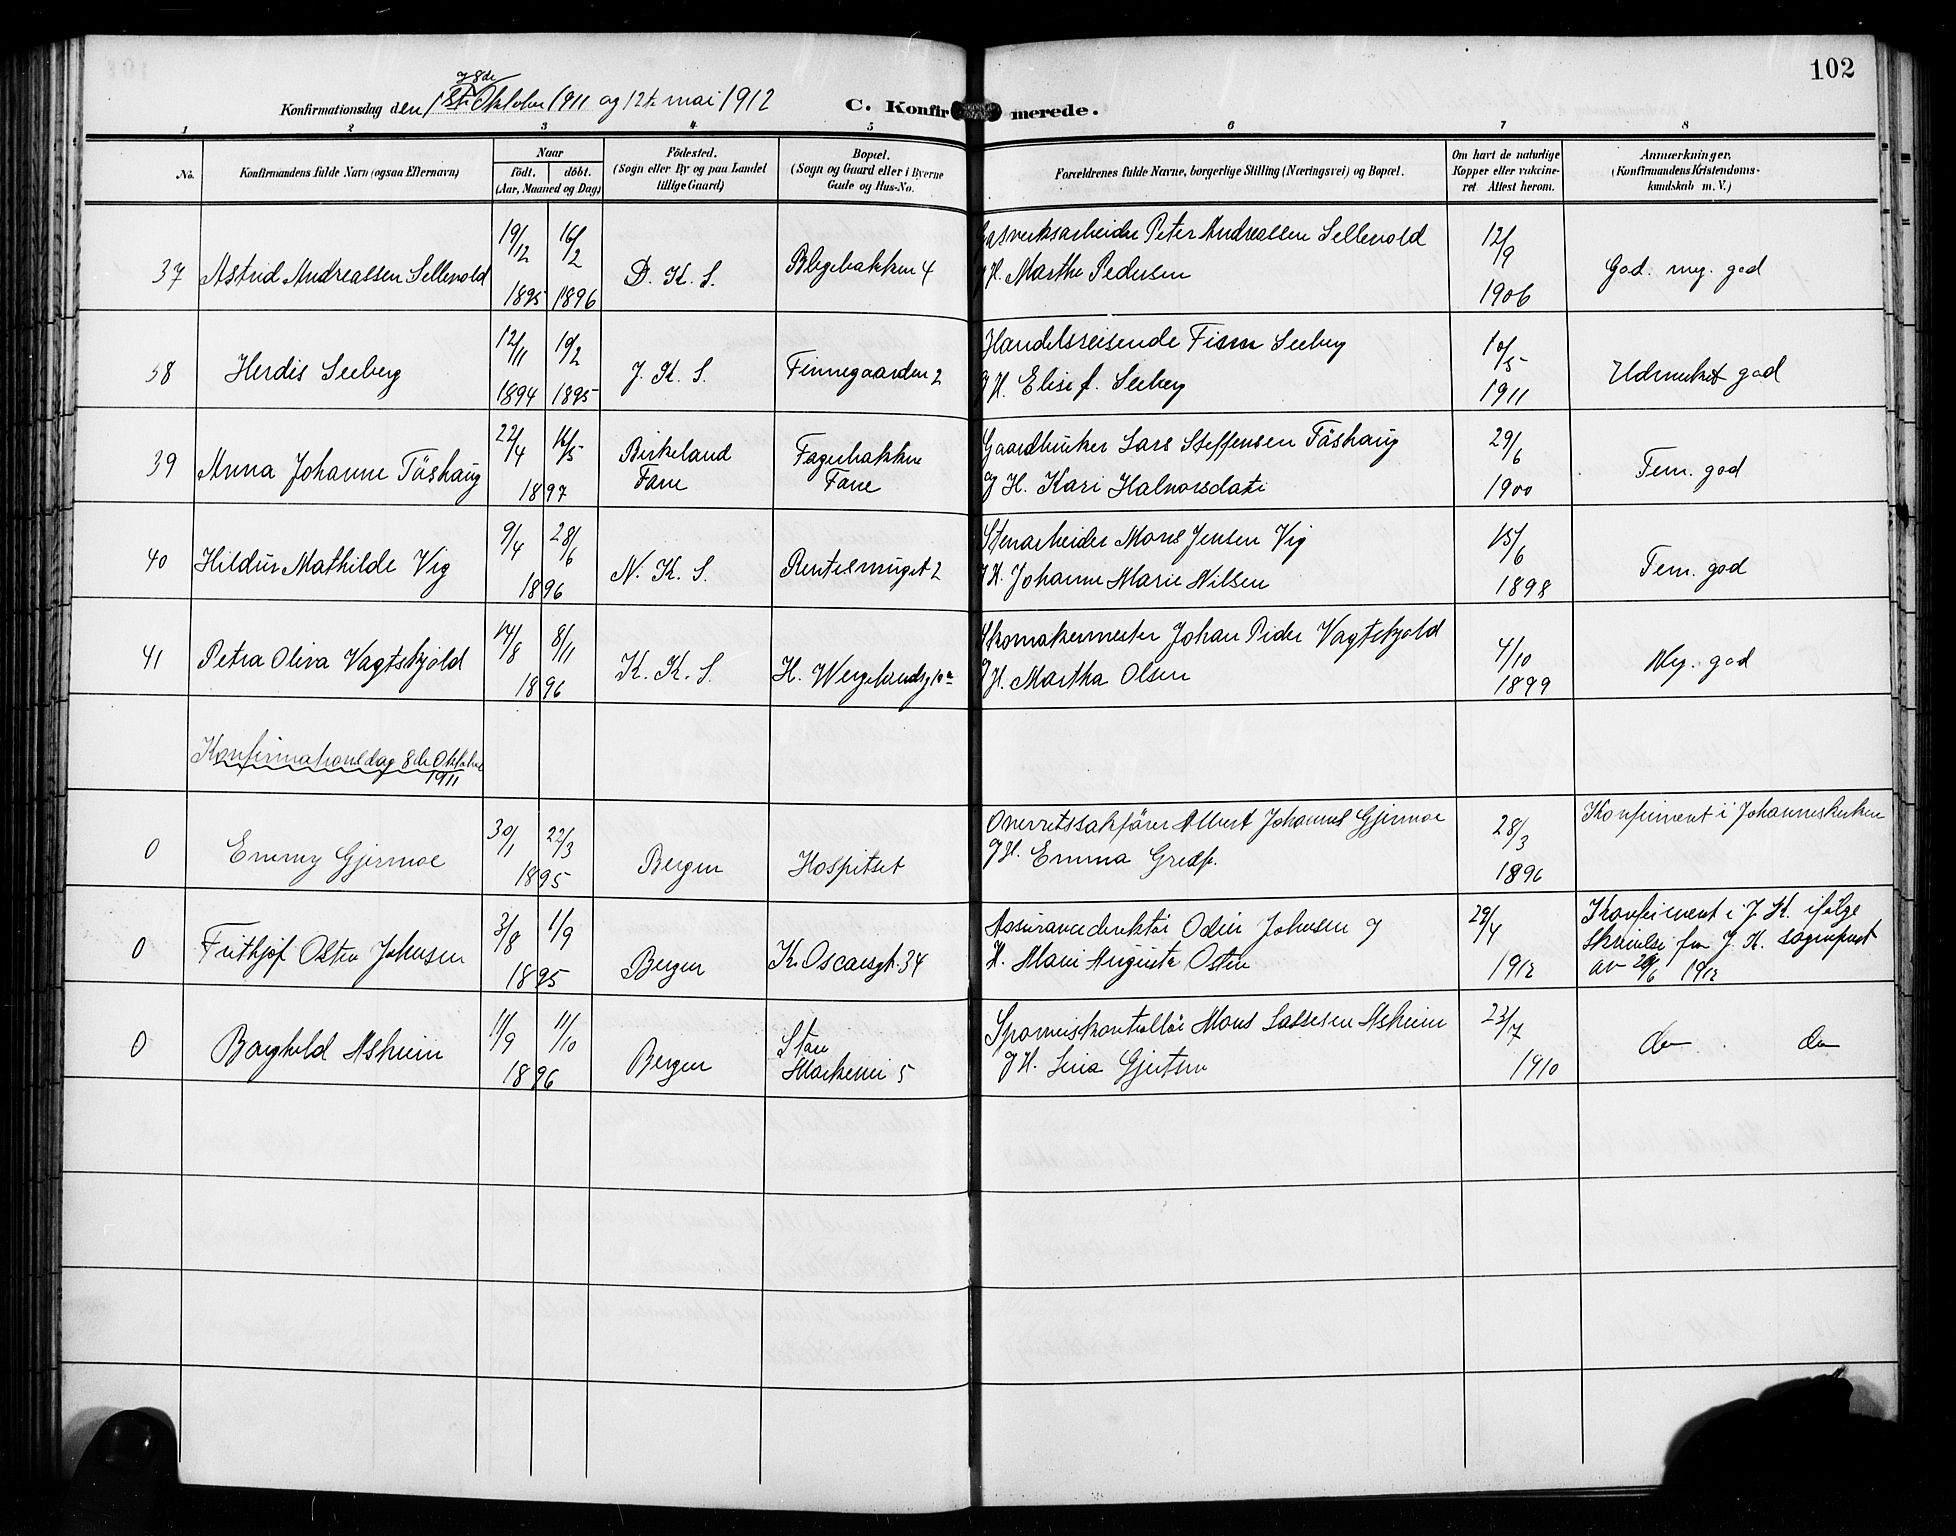 102
Konfirmationsdag den 1ste Oktober 1911 og 12te mai 1912
og 8de
C. Konfirmerede.
1 2 3 4 5 6 7 8
No.
Konfirmandens fulde Navn (ogsaa Efternavn)
Naar
født. døbt.
(Aar, Maaned og Dag)
Födested.
(Sogn eller By og paa Landet
tillige Gaard)
Bopæl.
(Sogn og Gaard eller i Byerne
Gade og Hus-No.
Forældrenes fulde Navne, borgerlige Stilling (Næringsvei) og Bopæl.
Om havt de naturlige
Kopper eller vakcine-
ret Attest herom.
Anmærkninger.
(Konfirmandens Kristendoms-
kundskab m. V.)
37 Astrid Andreassen Sellevold 19/12 1895 16/2 1896 D. K. S. Blegebakken 4
Gasverksarbeider Peter Andreassen Sellevold
og H. Marthe Pedersen
12/9 1906 God. meg. god
38 Herdis Seeberg 12/11 1894 19/2 1895 J. K. S. Finnegaarden 2
Handelsreisende Seeberg
og H. Elise f. Seeberg
10/5 1911 Udmerket god
39 Anna Johanne Töshaug 22/4 16/5 1897 Birkeland
Fane
Fagerbakken
Fane
Gaardbruker Lars Steffensen Töshaug
og H. Kari Halvorsdatter
29/6 1900 Tem. god
40 Hildur Mathilde Vig 9/4 28/6 1896 N. K. S. Rentesmuget 2
Stenarbeider Mons Jensen Vig
og H. Johanne Marie Nilsen
15/6 1898 Tem. god
41 Petra Oliva Vagtskjold 14/8 8/11 1896 K. K. S. H. Wergelandsg 10a
Skomakermester Johan Peder Vagtskjold
og H. Martha Olsen
4/10 1899 Meg. god
Konfirmationsdag 8de Oktober
1911
0 Emmy Gjermoe 30/1 22/3 1895 Bergen Hospitset
Overretssakfører Albert Johannes Gjermoe
og H. Emma
28/3 1896 Konfirmert i Johanneskirken
0 Frithjof Osten Johnsen 3/8 1/9 1895 Bergen K. Oscarsgt. 34
Assurancedirektør Odin Johnsen og
H. Marie Augusta Osten
29/4 1912 Konfirmert i J. K. ifølge
skrivelse fra J. K. sogneprest
av 29/6 1912
0 Borghild Askeim 11/9 11/10 1896 Bergen Store
Markevei 5
Sporveiskontrollør Mons Lassesen Askeim
og H. Lina Gjertsen
23/7 1910 do do